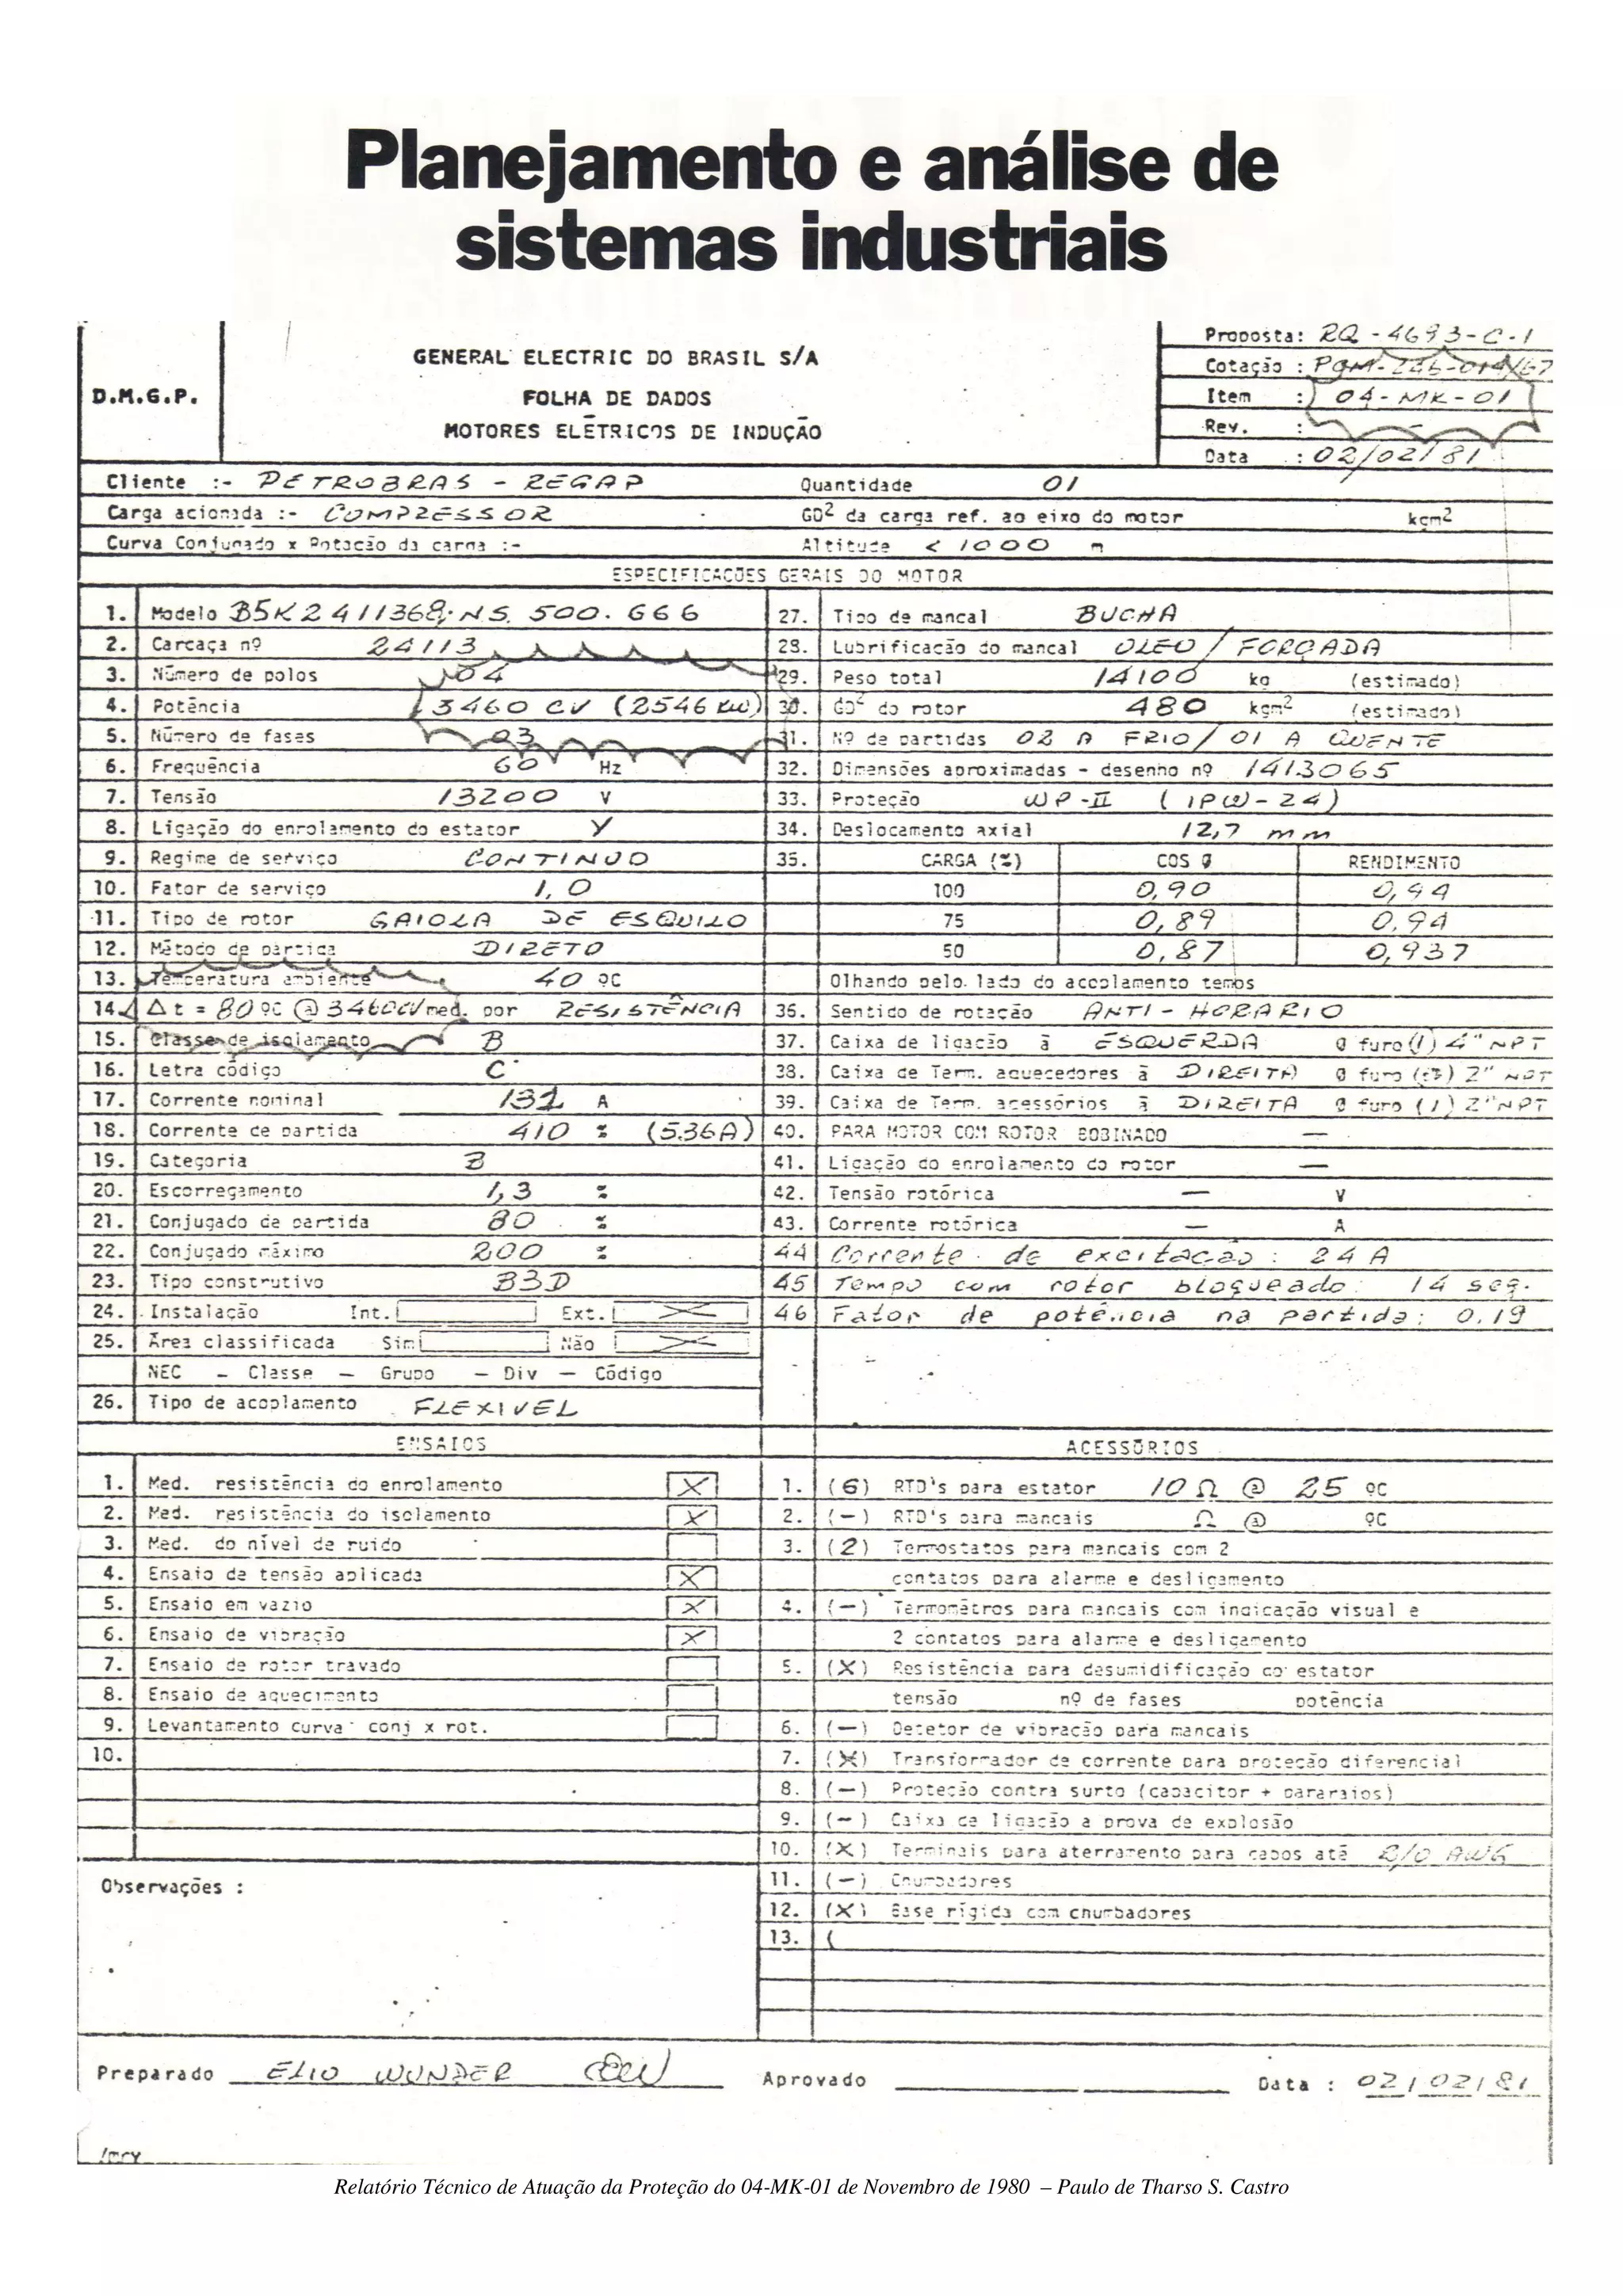 Planejamento e análise de
sistemas industriais
D.M.G.P.
GENERAL ELECTRIC DO BRASIL S/A
FOLHA DE DADOS
MOTORES ELÉTRICOS DE INDUÇÃO
Proposta: RQ-4693-C-1
Cotação :
Item : 04-MK-01
Rev. : -
Data : 02/02/81
Cliente :- PETROBRAS - REGAP
Quantidade 01
Carga acionada :- COMPRESSOR
GD2 da carga ref. ao eixo do motor kgm2
Curva Conjugado x Rotação da carga :-
Altitude < 1000 m
ESPECIFICAÇÕES GERAIS DO MOTOR
1. Modelo B5K2411368; NS. 500.666
2. Carcaça nº 24113
3. Número de polos 04
4. Potência 3460 CV (2546 KW)
5. Número de fases 03
6. Frequência 60 Hz
7. Tensão 13200 V
8. Ligação do enrolamento do estator Y
9. Regime de serviço CONTINUO
10. Fator de serviço 1,0
11. Tipo de rotor GAIOLA DE ESQUILO
12. Método de partida DIRETO
13. Temperatura ambiente 40 ºC
14. Δt = 80 ºC @ 3460CV med. por RESISTÊNCIA
15. Classe de isolamento B
16. Letra código C
17. Corrente nominal 131 A
18. Corrente de partida 410 % (536A)
19. Categoria B
20. Escorregamento 1,3 %
21. Conjugado de partida 80 %
22. Conjugado máximo 200 %
23. Tipo construtivo B3D
24. Instalação Int. Ext. X
25. Área classificada Sim Não X
NEC - Classe - Grupo - Div - Código
26. Tipo de acoplamento FLEXIVEL
27. Tipo de mancal BUCHA
28. Lubrificação do mancal OLEO / FORÇADA
29. Peso total 14100 kg (estimado)
30. GD2 do rotor 480 kgm2 (estimado)
31. Nº de partidas 02 A FRIO/ 01 A QUENTE
32. Dimensões aproximadas - desenho nº 1413065
33. Proteção WP-II (IPW-24)
34. Deslocamento axial 12,7 mm
35. CARGA (%) COS Ø RENDIMENTO
100 0,90 0,94
75 0,89 0,94
50 0,87 0,937
Olhando pelo lado do acoplamento temos
36. Sentido de rotação ANTI-HORARIO
37. Caixa de ligação à ESQUERDA Ø furo (1) 4" NPT
38. Caixa de Term. aquecedores à DIREITA Ø furo 2" NPT
39. Caixa de Term. acessórios à DIREITA Ø furo (1) 2" NPT
40. PARA MOTOR COM ROTOR BOBINADO -
41. Ligação do enrolamento do rotor -
42. Tensão rotórica - V
43. Corrente rotórica - A
44 Corrente de excitação: 24 A
45 Tempo com rotor bloqueado: 14 seg.
46 Fator de potência na partida: 0.19
ENSAIOS
1. Med. resistência do enrolamento X
2. Med. resistência do isolamento X
3. Med. do nível de ruido
4. Ensaio de tensão aplicada X
5. Ensaio em vazio X
6. Ensaio de vibração X
7. Ensaio de rotor travado
8. Ensaio de aquecimento
9. Levantamento curva conj x rot.
10.
Observações :
ACESSÓRIOS
1. (6) RTD's para estator 10 Ω @ 25 ºC
2. (-) RTD's para mancais Ω @ ºC
3. (2) Termostatos para mancais com 2
contatos para alarme e desligamento
4. (-) Termômetros para mancais com indicação visual e
2 contatos para alarme e desligamento
5. (X) Resistência para desumidificação do estator
tensão nº de fases potência
6. (-) Detetor de vibração para mancais
7. (X) Transformador de corrente para proteção diferencial
8. (-) Proteção contra surto (capacitor + pararaios)
9. (-) Caixa de ligação a prova de explosão
10. (X) Terminais para aterramento para cabos até 2/0 AWG
11. (-) Chumbadores
12. (X) Base rígida com chumbadores
13. (
Preparado ELIO WUNDER
Aprovado
Data : 02/02/81
/mcv
Relatório Técnico de Atuação da Proteção do 04-MK-01 de Novembro de 1980 – Paulo de Tharso S. Castro